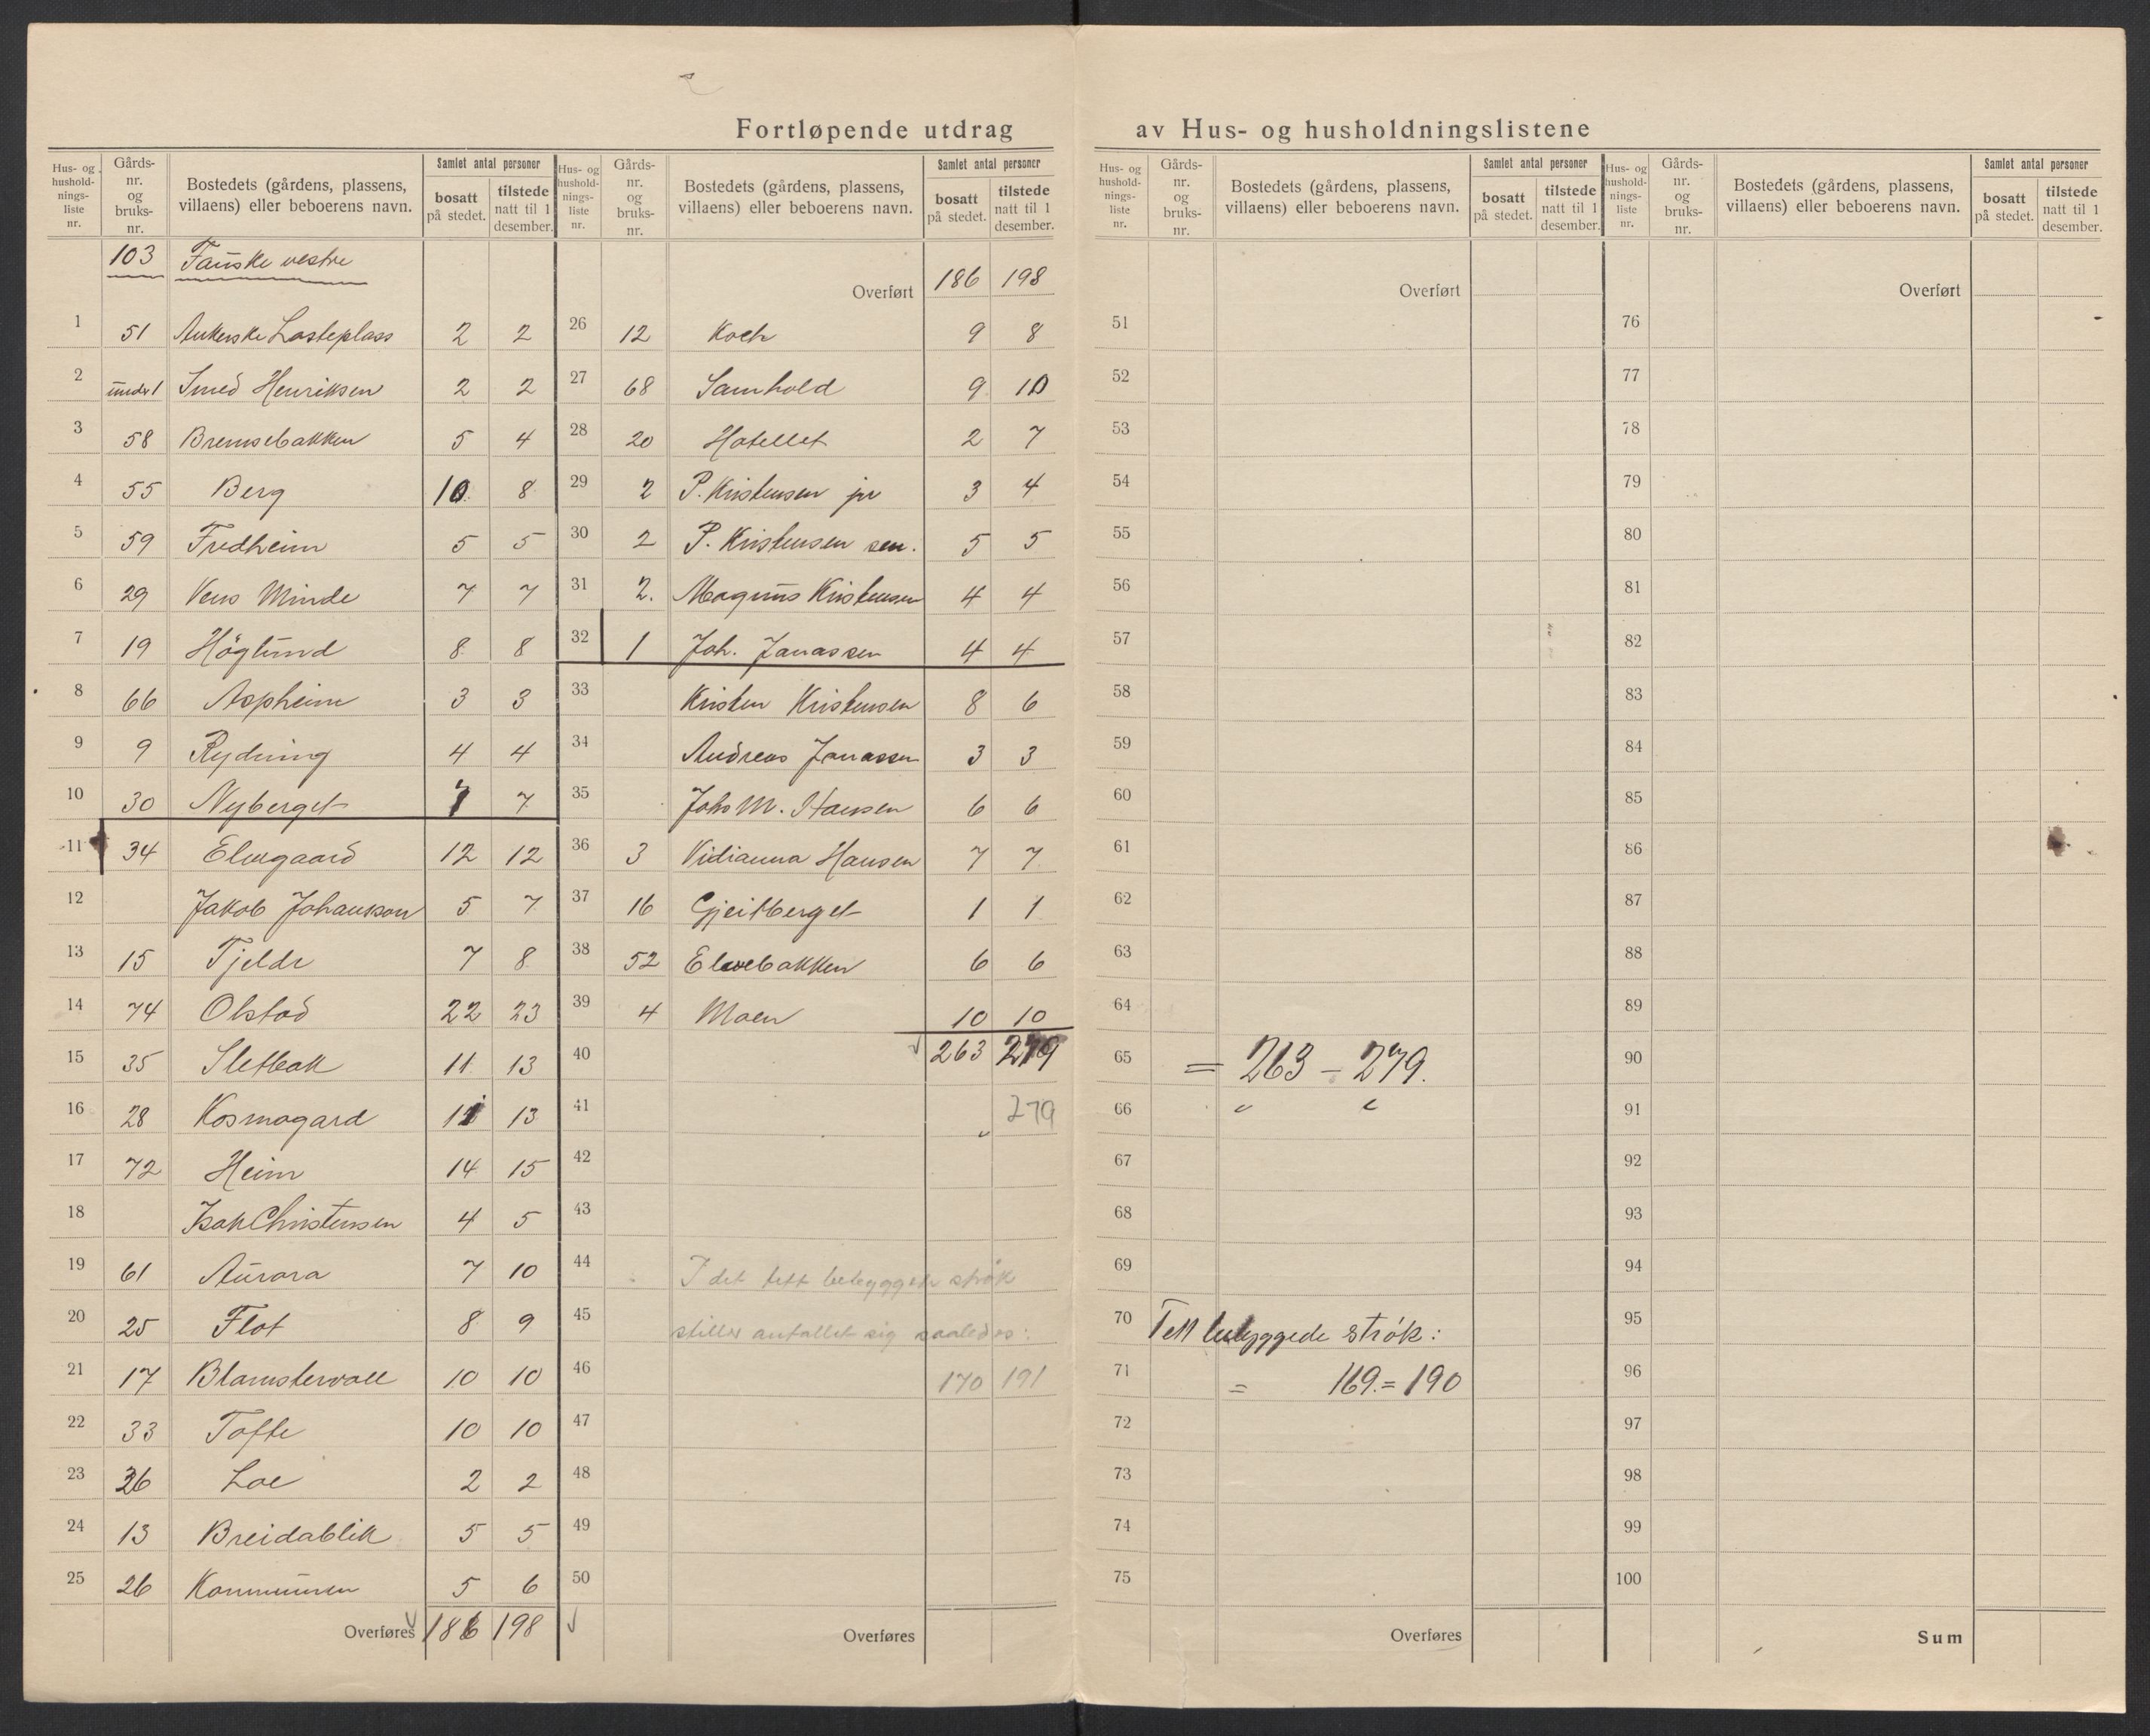 Fortløpende utdrag av Hus- og husholdningslistene
Hus- og hushold-nings-liste nr. Gårds-nr. og bruks-nr. Bostedets (gårdens, plassens, villaens) eller beboerens navn. Samlet antal personer bosatt på stedet. tilstede natt til 1 desember.
103 Fauske vestre
1 51 Ankerske Lasteplass 2 2
2 under 1 Smed Henriksen 2 2
3 58 Bremsebakken 5 4
4 55 Berg 10 8
5 59 Fredheim 5 5
6 29 Vens Minde 7 7
7 19 Höglund 8 8
8 66 Aspheim 3 3
9 9 Rydning 4 4
10 30 Nyberget 7 7
11 34 Elvegaard 12 12
12 Jakob Johansson 5 7
13 15 Tjeldr 7 8
14 74 Olstad 22 23
15 35 Sletbak 11 13
16 28 Kosmogard 11 13
17 72 Heim 14 15
18 Isak Christensen 4 5
19 61 Aurora 7 10
20 25 Flot 8 9
21 17 Blomstervoll 10 10
22 33 Tofte 10 10
23 36 Loe 2 2
24 13 Breidablik 5 5
25 26 Kommunen 5 6
Overføres 186 198
Hus- og hushold-nings-liste nr. Gårds-nr. og bruks-nr. Bostedets (gårdens, plassens, villaens) eller beboerens navn. Samlet antal personer bosatt på stedet. tilstede natt til 1 desember.
Overført 186 198
26 12 Koch 9 8
27 68 Samhold 9 10
28 20 Hotellet 2 7
29 2 P. Kristensen jr 3 4
30 2 P. Kristensen sen. 5 5
31 2. Magnus Kristensen 4 4
32 1 Joh. Jonassen 4 4
33 Kristen Kristensen 8 6
34 Andreas Jonassen 3 3
35 Johs M. Hansen 6 6
36 3 Vidianna Hansen 7 7
37 16 Gjeitberget 1 1
38 52 Elvebakken 6 6
39 4 Moen 10 10
40 263 279
41 279
42
43
44 I det tett bebyggede strøk
45 stiller antallet sig saaledes:
46 170 191
47
48
49
50
Overføres
Hus- og hushold-nings-liste nr. Gårds-nr. og bruks-nr. Bostedets (gårdens, plassens, villaens) eller beboerens navn. Samlet antal personer bosatt på stedet. tilstede natt til 1 desember.
Overført
51
52
53
54
55
56
57
58
59
60
61
62
63
64
65 = 263 – 279.
66
67
68
69
70 Tett bebyggede strøk:
71 = 169. = 190
72
73
74
75
Overføres
Hus- og hushold-nings-liste nr. Gårds-nr. og bruks-nr. Bostedets (gårdens, plassens, villaens) eller beboerens navn. Samlet antal personer bosatt på stedet. tilstede natt til 1 desember.
Overført
76
77
78
79
80
81
82
83
84
85
86
87
88
89
90
91
92
93
94
95
96
97
98
99
100
Sum